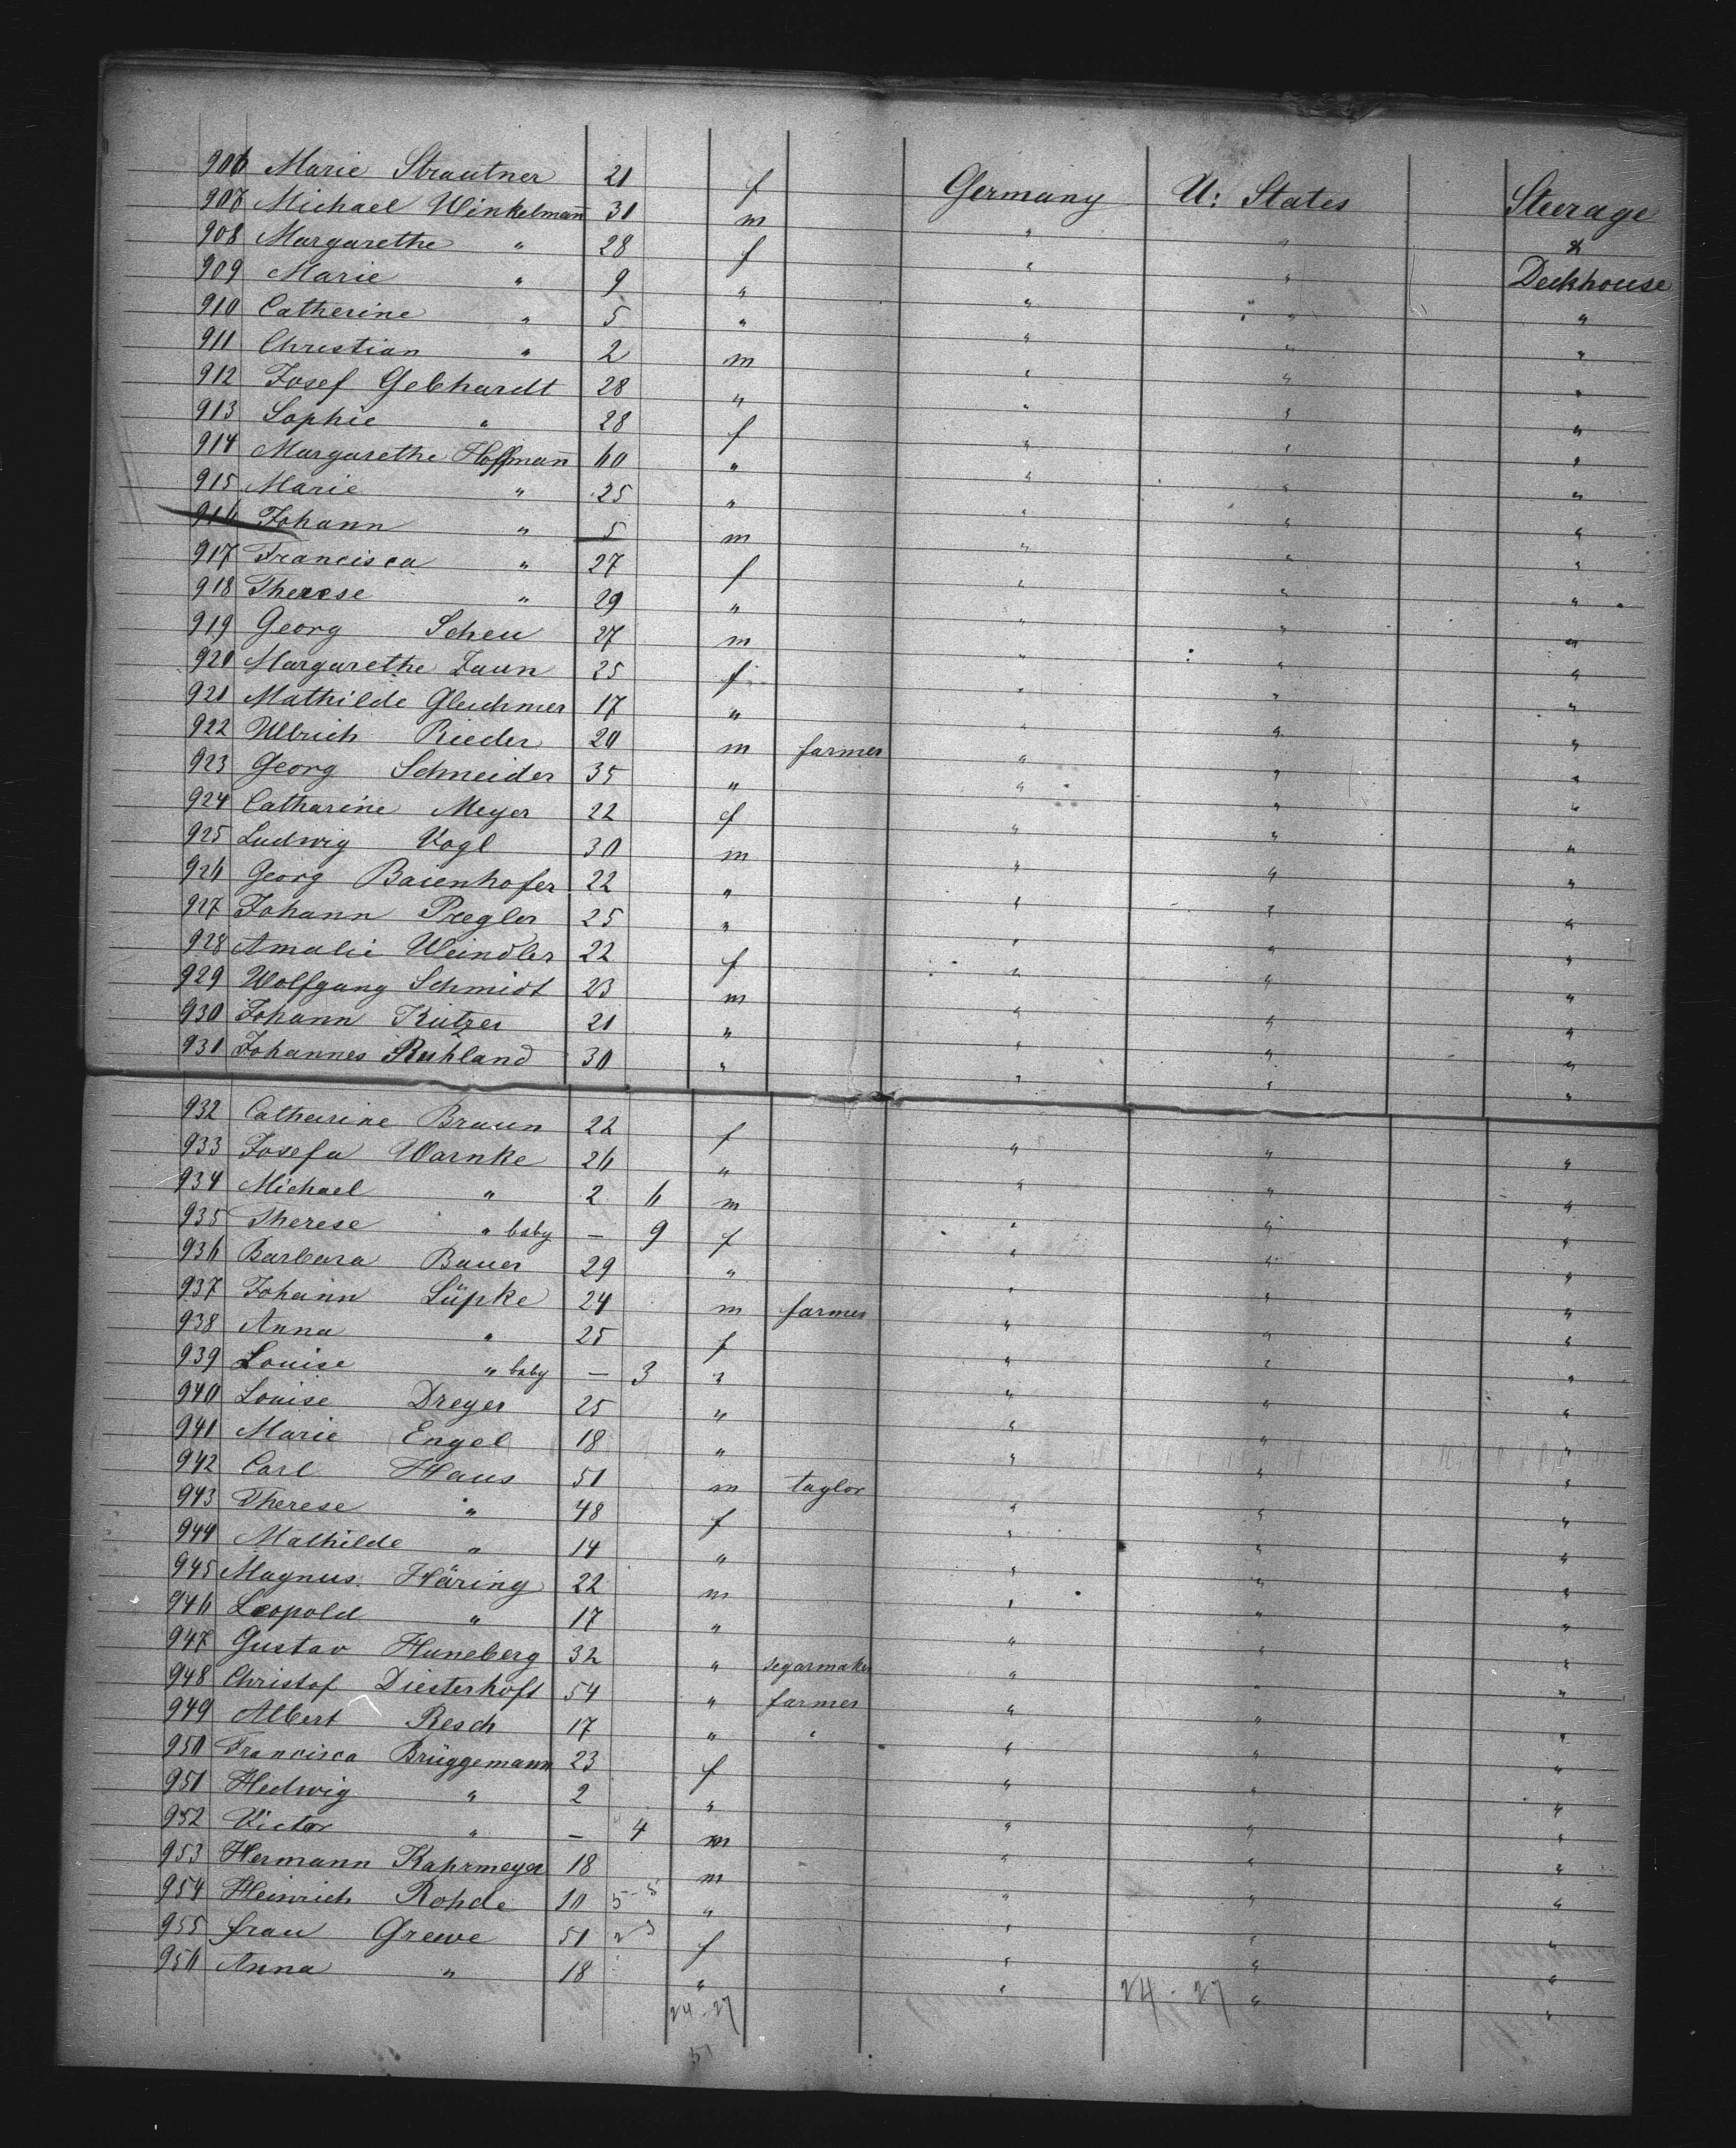 906 Marie Strautner 21 f Germany U: States Steerage
907 Michael Winkelmann 31 m " " &
908 Margarethe " 28 f " " Deckhouse
909 Marie " 9 " " " "
910 Catherine " 5 " " " "
911 Christian " 2 m " " "
912 Josef Gebhardt 28 " " " "
913 Sophie " 28 f " " "
914 Margarethe Hoffmann 60 " " " "
915 Marie " 25 " " " "
916 Johann " 5 m " " "
917 Francisca " 27 f " " "
918 Therese " 29 " " " "
919 Georg Scheu 27 m " " "
920 Margarethe Zaun 25 f " " "
921 Mathilde Gleichmer 17 " " " "
922 Ulbrich Rieder 20 m farmer " " "
923 Georg Schneider 35 " " " "
924 Catharine Meyer 22 f " " "
925 Ludwig Vogl 30 m " " "
926 Georg Baienhofer 22 " " " "
927 Johann Pregler 25 " " " "
928 Amalie Weindler 22 f " " "
929 Wolfgang Schmidt 23 m " " "
930 Johann Kutzer 21 " " " "
931 Johannes Ruhland 30 " " " "
932 Catharine Braun 22 f " " "
933 Josefa Warnke 26 " " " "
934 Michael " 2 6 m " " "
935 Therese " baby — 9 f " " "
936 Barbara Bauer 29 " " " "
937 Johann Lüpke 24 m farmer " " "
938 Anna " 25 f " " "
939 Louise " baby — 3 " " " "
940 Louise Dreyer 25 " " " "
941 Marie Engel 18 " " " "
942 Carl Haus 51 m taylor " " "
943 Therese " 48 f " " "
944 Mathilde " 14 " " " "
945 Magnus Häring 22 m " " "
946 Leopold " 17 " " " "
947 Gustav Huneberg 32 " segarmaker " " "
948 Christof Diesterhöft 54 " farmer " " "
949 Albert Resch 17 " " " " "
950 Francisca Brüggemann 23 f " " "
951 Hedwig " 2 " " " "
952 Victor " — 4 m " " "
953 Hermann Kahrmeyer 18 m " " "
954 Heinrich Rohde 10 5-5 " " " "
955 frau Grewe 51 2 3 f " " "
956 Anna " 18 " " " "
24-27 24-27
51